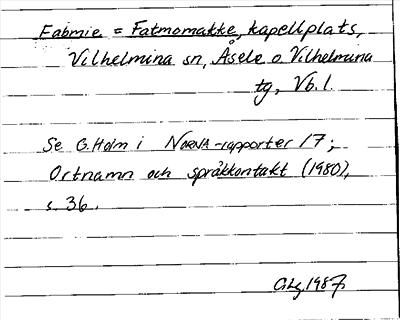 Fabmie = Fatmomakke, kapellplats,
Vilhelmina sn, Åsele o. Vilhelmina
tg, Vb. l.
Se G. Holm i NORNA-rapporter 17;
Ortnamn och språkkontakt (1980),
s. 36.
1987.